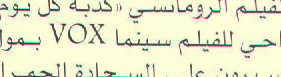 لفيلم الرومانسي «كذبة كل يوم
احي للفيلم سينما VOX بمول
يسيرون على السجادة الحمرا